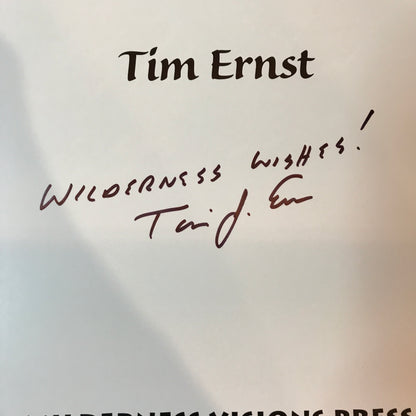 Tim Ernst
WILDERNESS WISHES!
Tim J. Ern
WILDERNESS VISIONS PRESS